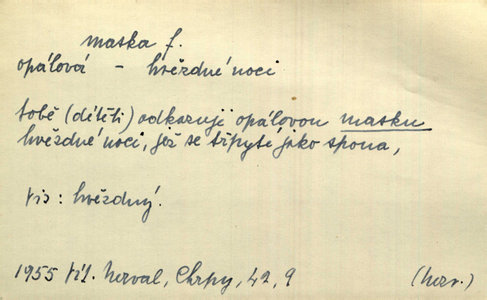 maska f.
opálová – hvězdné noci
tobě (dítěti) odkazuji opálovou masku
hvězdné noci, jež se třpytí jako spona,
viz: hvězdný.
1955 Vít. Nerval, Chrpy, 42, 9 (nerv.)